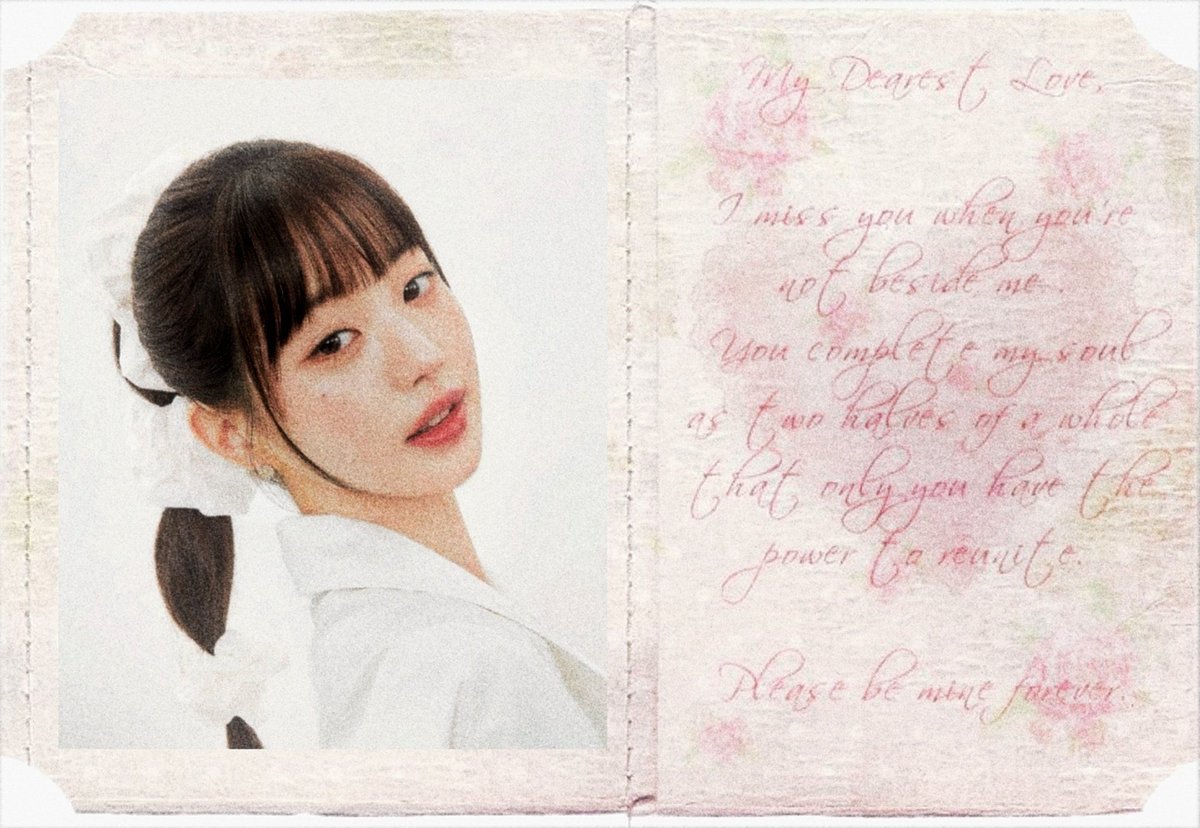 My Dearest Love,
I miss you when you're
not beside me.
You complete my soul
as two halves of a whole
that only you have the
power to reunite.
Please be mine forever.